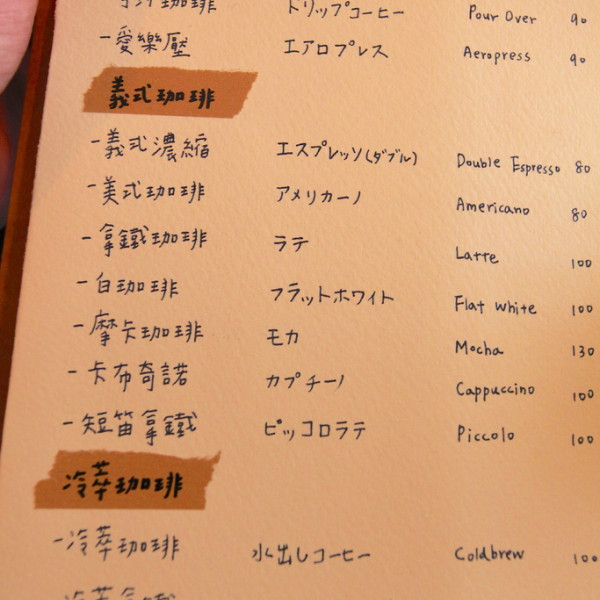 珈琲 ドリップコーヒー Pour Over 90
-愛樂壓 エアロプレス Aeropress 90
義式珈琲
-義式濃縮 エスプレッソ(ダブル) Double Espresso 80
-美式珈琲 アメリカーノ Americano 80
-拿鐵珈琲 ラテ Latte 100
-白珈琲 フラットホワイト Flat White 100
-摩卡珈琲 モカ Mocha 130
-卡布奇諾 カプチーノ Cappuccino 100
-短笛拿鐵 ピッコロラテ Piccolo 100
冷萃珈琲
-冷萃珈琲 水出しコーヒー Coldbrew 100